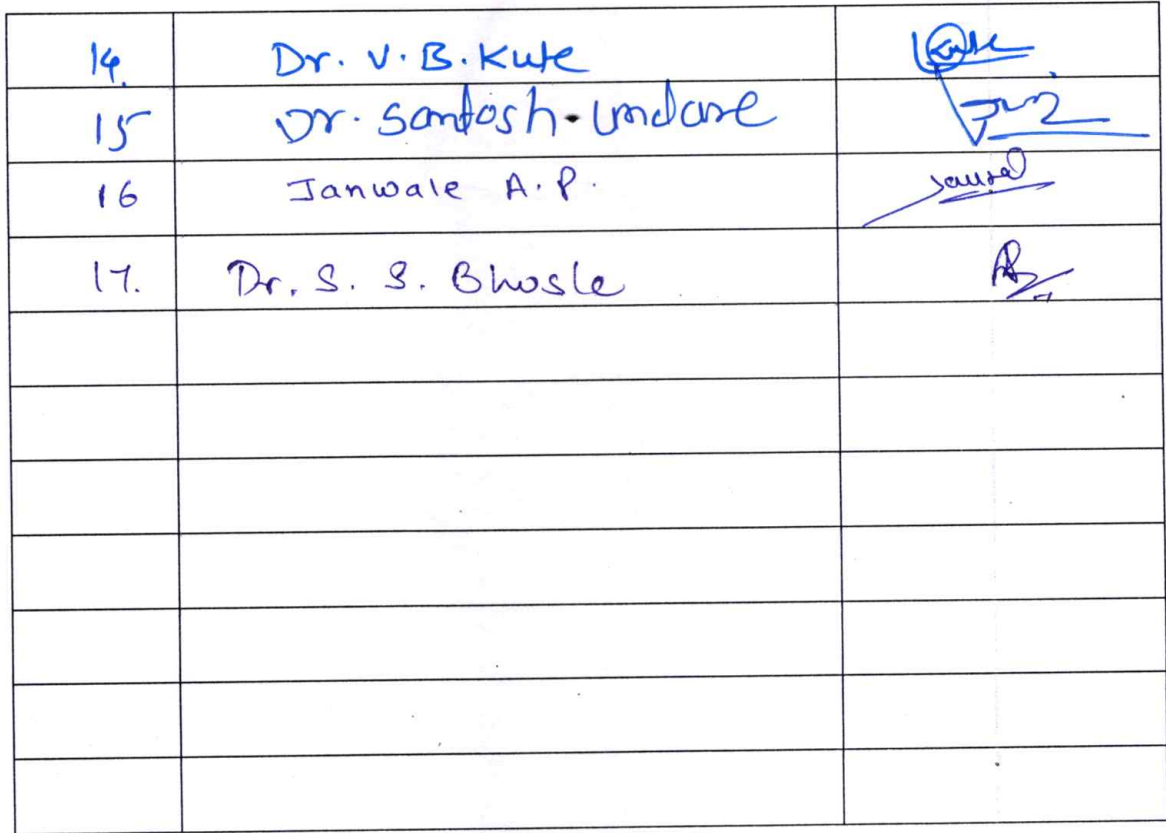 14. Dr. V. B. Kute Kute
15 Dr. Santosh Undare
16 Janwale A. P.
17. Dr. S. S. Bhosle